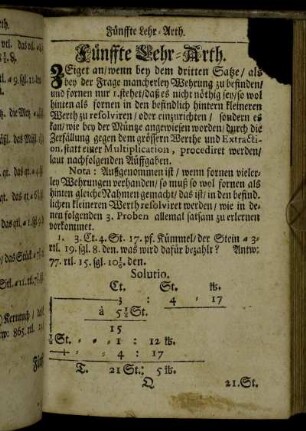 Fünffte Lehr-Arth.
Fünffte Lehr-Arth.
ZEiget an/ wenn bey dem dritten Satze/ als
bey der Frage mancherley Wehrung zu befinden/
und fornen nur 1. stehet/ daß es nicht nöthig sey/ so wol
hinten als fornen in den befindlich hintern kleineren
Werth zu resolviren/ oder einzurichten/ sondern es
kan/ wie bey der Müntze angewiesen worden/ durch die
Zerfällung gegen dem grössern Werthe und Extracti-
on, statt einer Multiplication, procediret werden/
laut nachfolgenden Auffgaben.
Nota: Außgenommen ist/ wenn fornen vieler-
ley Wehrungen verhanden/ so muß so wol fornen als
hinten gleiche Nahmen gemacht/ das ist/ in den befind-
lichen kleineren Werth resolviret werden/ wie in de-
nen folgenden 3. Proben allemal satsam zu erlernen
vorkommet.
1. 3. Ct. 4. St. 17. pf. Kümmel/ der Stein a 3.
rtl. 19. sgl. 8. den. was wird dafür bezahlt? Antw:
77. rtl. 15. sgl. 10½. den.
Solutio.
Ct. St. tb.
3 : 4 . 17
à 5½ St.
15
½ St. 1 : 12 tb.
4 : 17
T. 21 St: 5 tb.
Q
21. St.